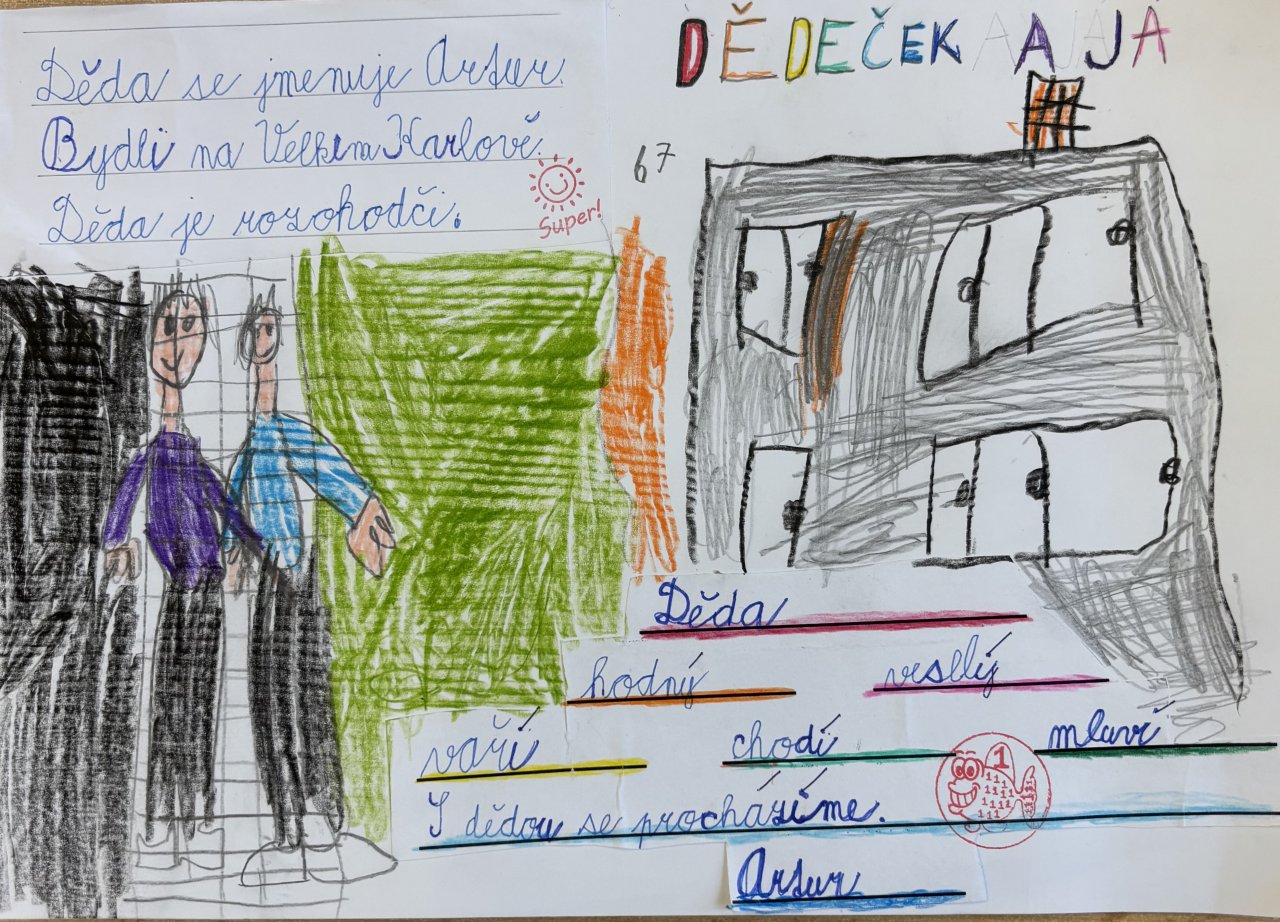 DĚDEČEK A JÁ
Děda se jmenuje Artur.
Bydli na Velkem Karlově.
Děda je rozohodči.
Super!
67
Děda
hodný veselý
vaří chodí mlaví
S dědou se procházíme.
1
Artur